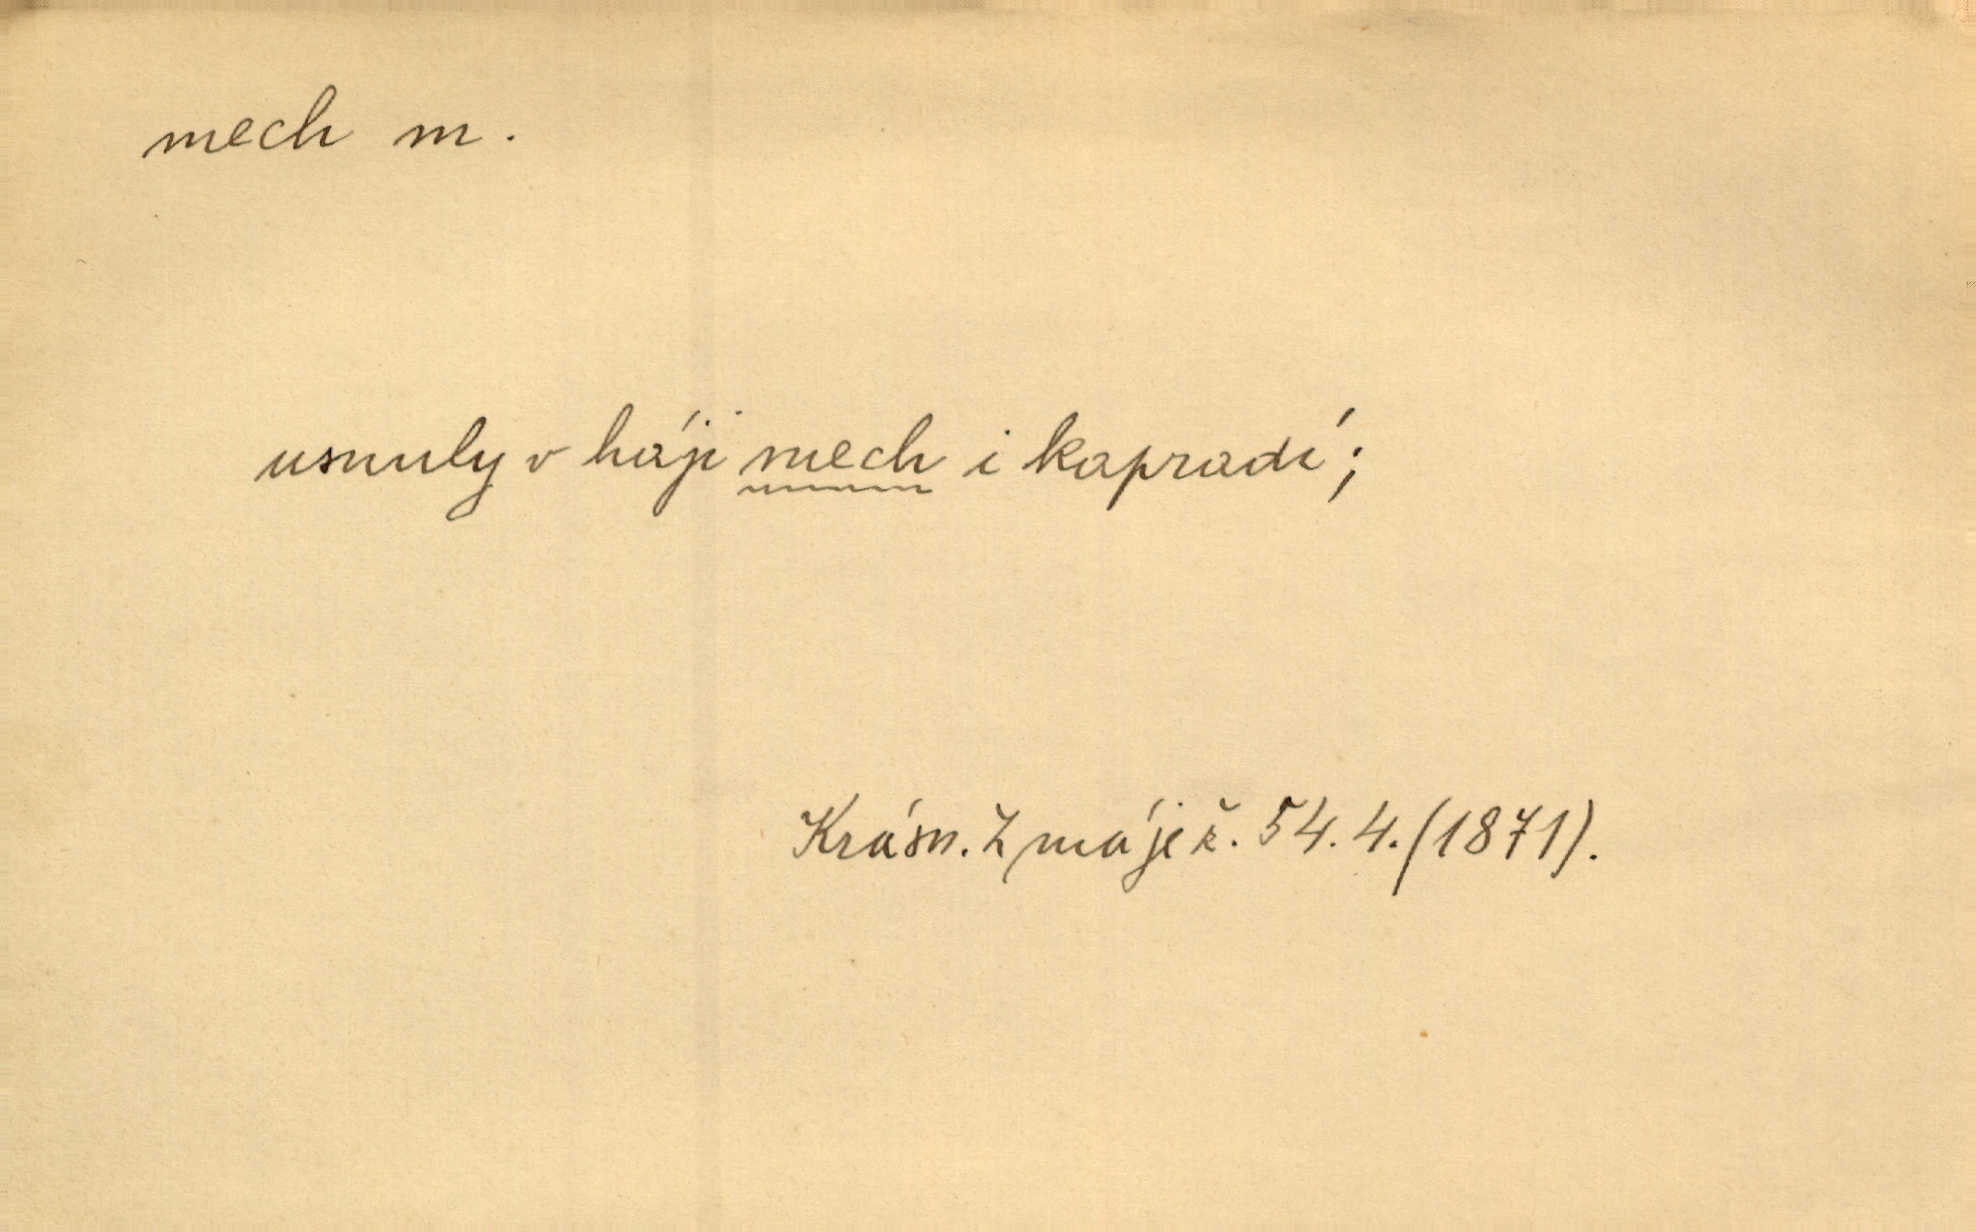 mech m.
usnuly v háji mech i kapradí;
Krásn. Z máje ž. 54. 4. (1871).